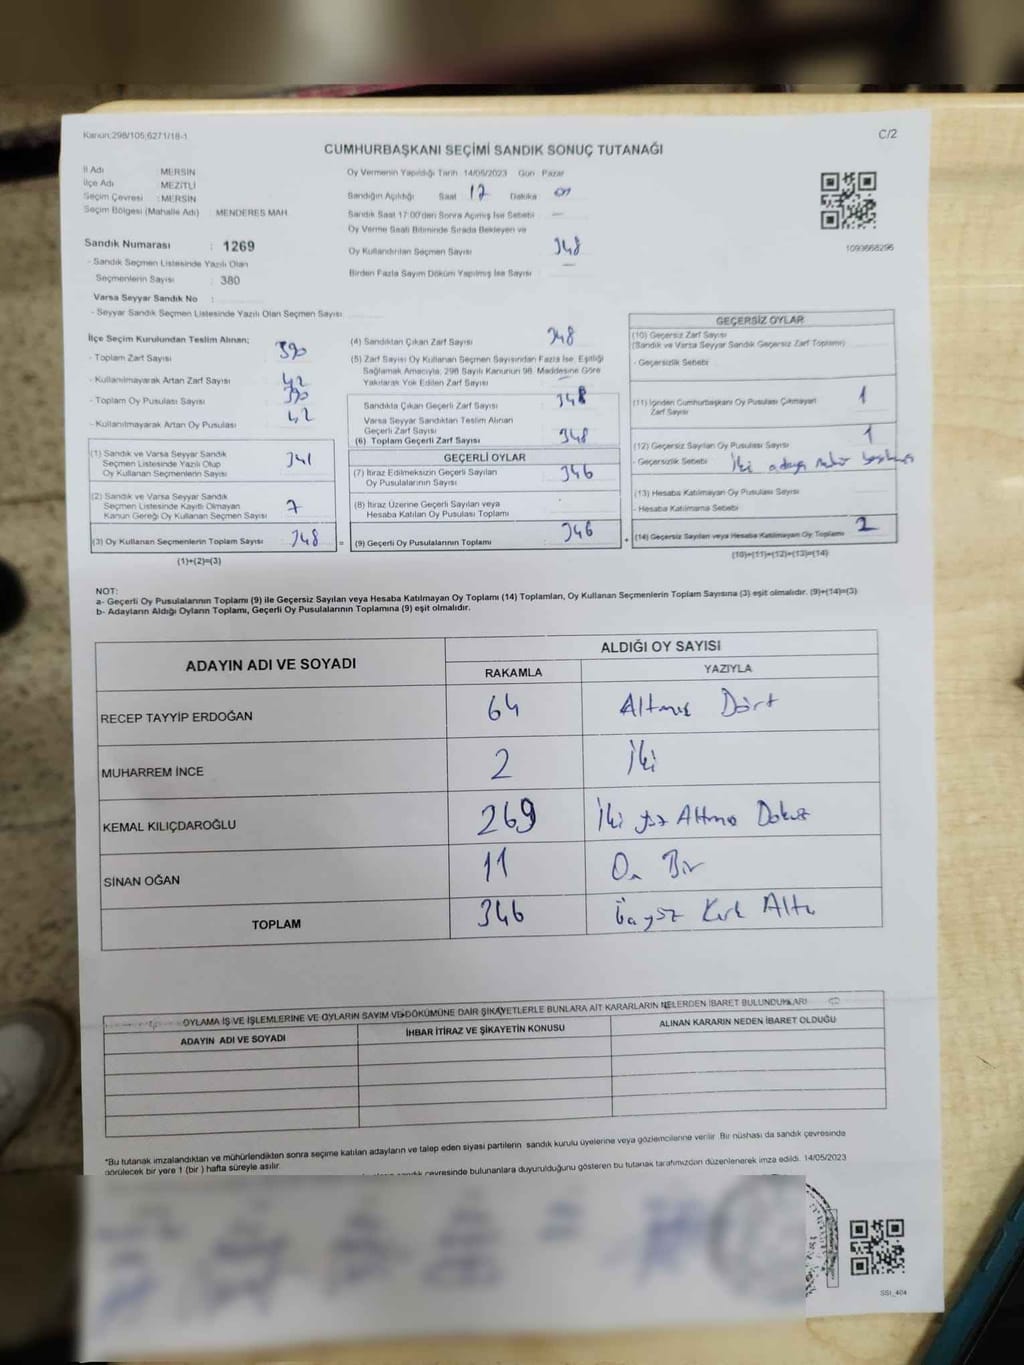 Kanun:298/105;6271/18-1
C/2
CUMHURBAŞKANI SEÇİMİ SANDIK SONUÇ TUTANAĞI
İl Adı : MERSİN
İlçe Adı : MEZİTLİ
Seçim Çevresi : MERSİN
Seçim Bölgesi (Mahalle Adı) : MENDERES MAH.
Sandık Numarası : 1269
- Sandık Seçmen Listesinde Yazılı Olan
Seçmenlerin Sayısı : 380
Varsa Seyyar Sandık No :
- Seyyar Sandık Seçmen Listesinde Yazılı Olan Seçmen Sayısı:
Oy Vermenin Yapıldığı Tarih 14/05/2023 Gün Pazar
Sandığın Açıldığı Saat 17 Dakika
Sandık Saat 17:00'den Sonra Açılmış İse Sebebi —
Oy Verme Saati Bitiminde Sırada Bekleyen ve
Oy Kullandırılan Seçmen Sayısı 348
Birden Fazla Sayım Döküm Yapılmış İse Sayısı : —
1093668296
İlçe Seçim Kurulundan Teslim Alınan;
- Toplam Zarf Sayısı 390
- Kullanılmayarak Artan Zarf Sayısı 42
- Toplam Oy Pusulası Sayısı 390
- Kullanılmayarak Artan Oy Pusulası 42
(1) Sandık ve Varsa Seyyar Sandık
Seçmen Listesinde Yazılı Olup
Oy Kullanan Seçmenlerin Sayısı 341
(2) Sandık ve Varsa Seyyar Sandık
Seçmen Listesinde Kayıtlı Olmayan
Kanun Gereği Oy Kullanan Seçmen Sayısı 7
(3) Oy Kullanan Seçmenlerin Toplam Sayısı 348
(1)+(2)=(3)
(4) Sandıktan Çıkan Zarf Sayısı 348
(5) Zarf Sayısı Oy Kullanan Seçmen Sayısından Fazla İse, Eşitliği
Sağlamak Amacıyla, 298 Sayılı Kanunun 98. Maddesine Göre
Yakılarak Yok Edilen Zarf Sayısı
Sandıkta Çıkan Geçerli Zarf Sayısı 348
Varsa Seyyar Sandıktan Teslim Alınan
Geçerli Zarf Sayısı
(6) Toplam Geçerli Zarf Sayısı 348
GEÇERLİ OYLAR
(7) İtiraz Edilmeksizin Geçerli Sayılan
Oy Pusulalarının Sayısı 346
(8) İtiraz Üzerine Geçerli Sayılan veya
Hesaba Katılan Oy Pusulası Toplamı
= (9) Geçerli Oy Pusulalarının Toplamı 346
GEÇERSİZ OYLAR
(10) Geçersiz Zarf Sayısı
(Sandık ve Varsa Seyyar Sandık Geçersiz Zarf Toplamı)
- Geçersizlik Sebebi
(11) İçinden Cumhurbaşkanı Oy Pusulası Çıkmayan
Zarf Sayısı 1
(12) Geçersiz Sayılan Oy Pusulası Sayısı 1
- Geçersizlik Sebebi İki adaya mühür
(13) Hesaba Katılmayan Oy Pusulası Sayısı
- Hesaba Katılmama Sebebi
+ (14) Geçersiz Sayılan veya Hesaba Katılmayan Oy Toplamı 2
(10)+(11)+(12)+(13)=(14)
NOT:
a- Geçerli Oy Pusulalarının Toplamı (9) ile Geçersiz Sayılan veya Hesaba Katılmayan Oy Toplamı (14) Toplamları, Oy Kullanan Seçmenlerin Toplam Sayısına (3) eşit olmalıdır. (9)+(14)=(3)
b- Adayların Aldığı Oyların Toplamı, Geçerli Oy Pusulalarının Toplamına (9) eşit olmalıdır.
ADAYIN ADI VE SOYADI
ALDIĞI OY SAYISI
RAKAMLA YAZIYLA
RECEP TAYYİP ERDOĞAN 64 Altmış Dört
MUHARREM İNCE 2 İki
KEMAL KILIÇDAROĞLU 269 İki yüz Altmış Dokuz
SİNAN OĞAN 11 On Bir
TOPLAM 346 Üç yüz Kırk Altı
OYLAMA İŞ VE İŞLEMLERİNE VE OYLARIN SAYIM VE DÖKÜMÜNE DAİR ŞİKAYETLERLE BUNLARA AİT KARARLARIN NELERDEN İBARET BULUNDUKLARI
ADAYIN ADI VE SOYADI İHBAR İTİRAZ VE ŞİKAYETİN KONUSU ALINAN KARARIN NEDEN İBARET OLDUĞU
*Bu tutanak imzalandıktan ve mühürlendikten sonra seçime katılan adayların ve talep eden siyasi partilerin sandık kurulu üyelerine veya gözlemcilerine verilir. Bir nüshası da sandık çevresinde
görülecek bir yere 1 (bir) hafta süreyle asılır.
sandık çevresinde bulunanlara duyurulduğunu gösteren bu tutanak tarafımızdan düzenlenerek imza edildi. 14/05/2023
SSİ_404